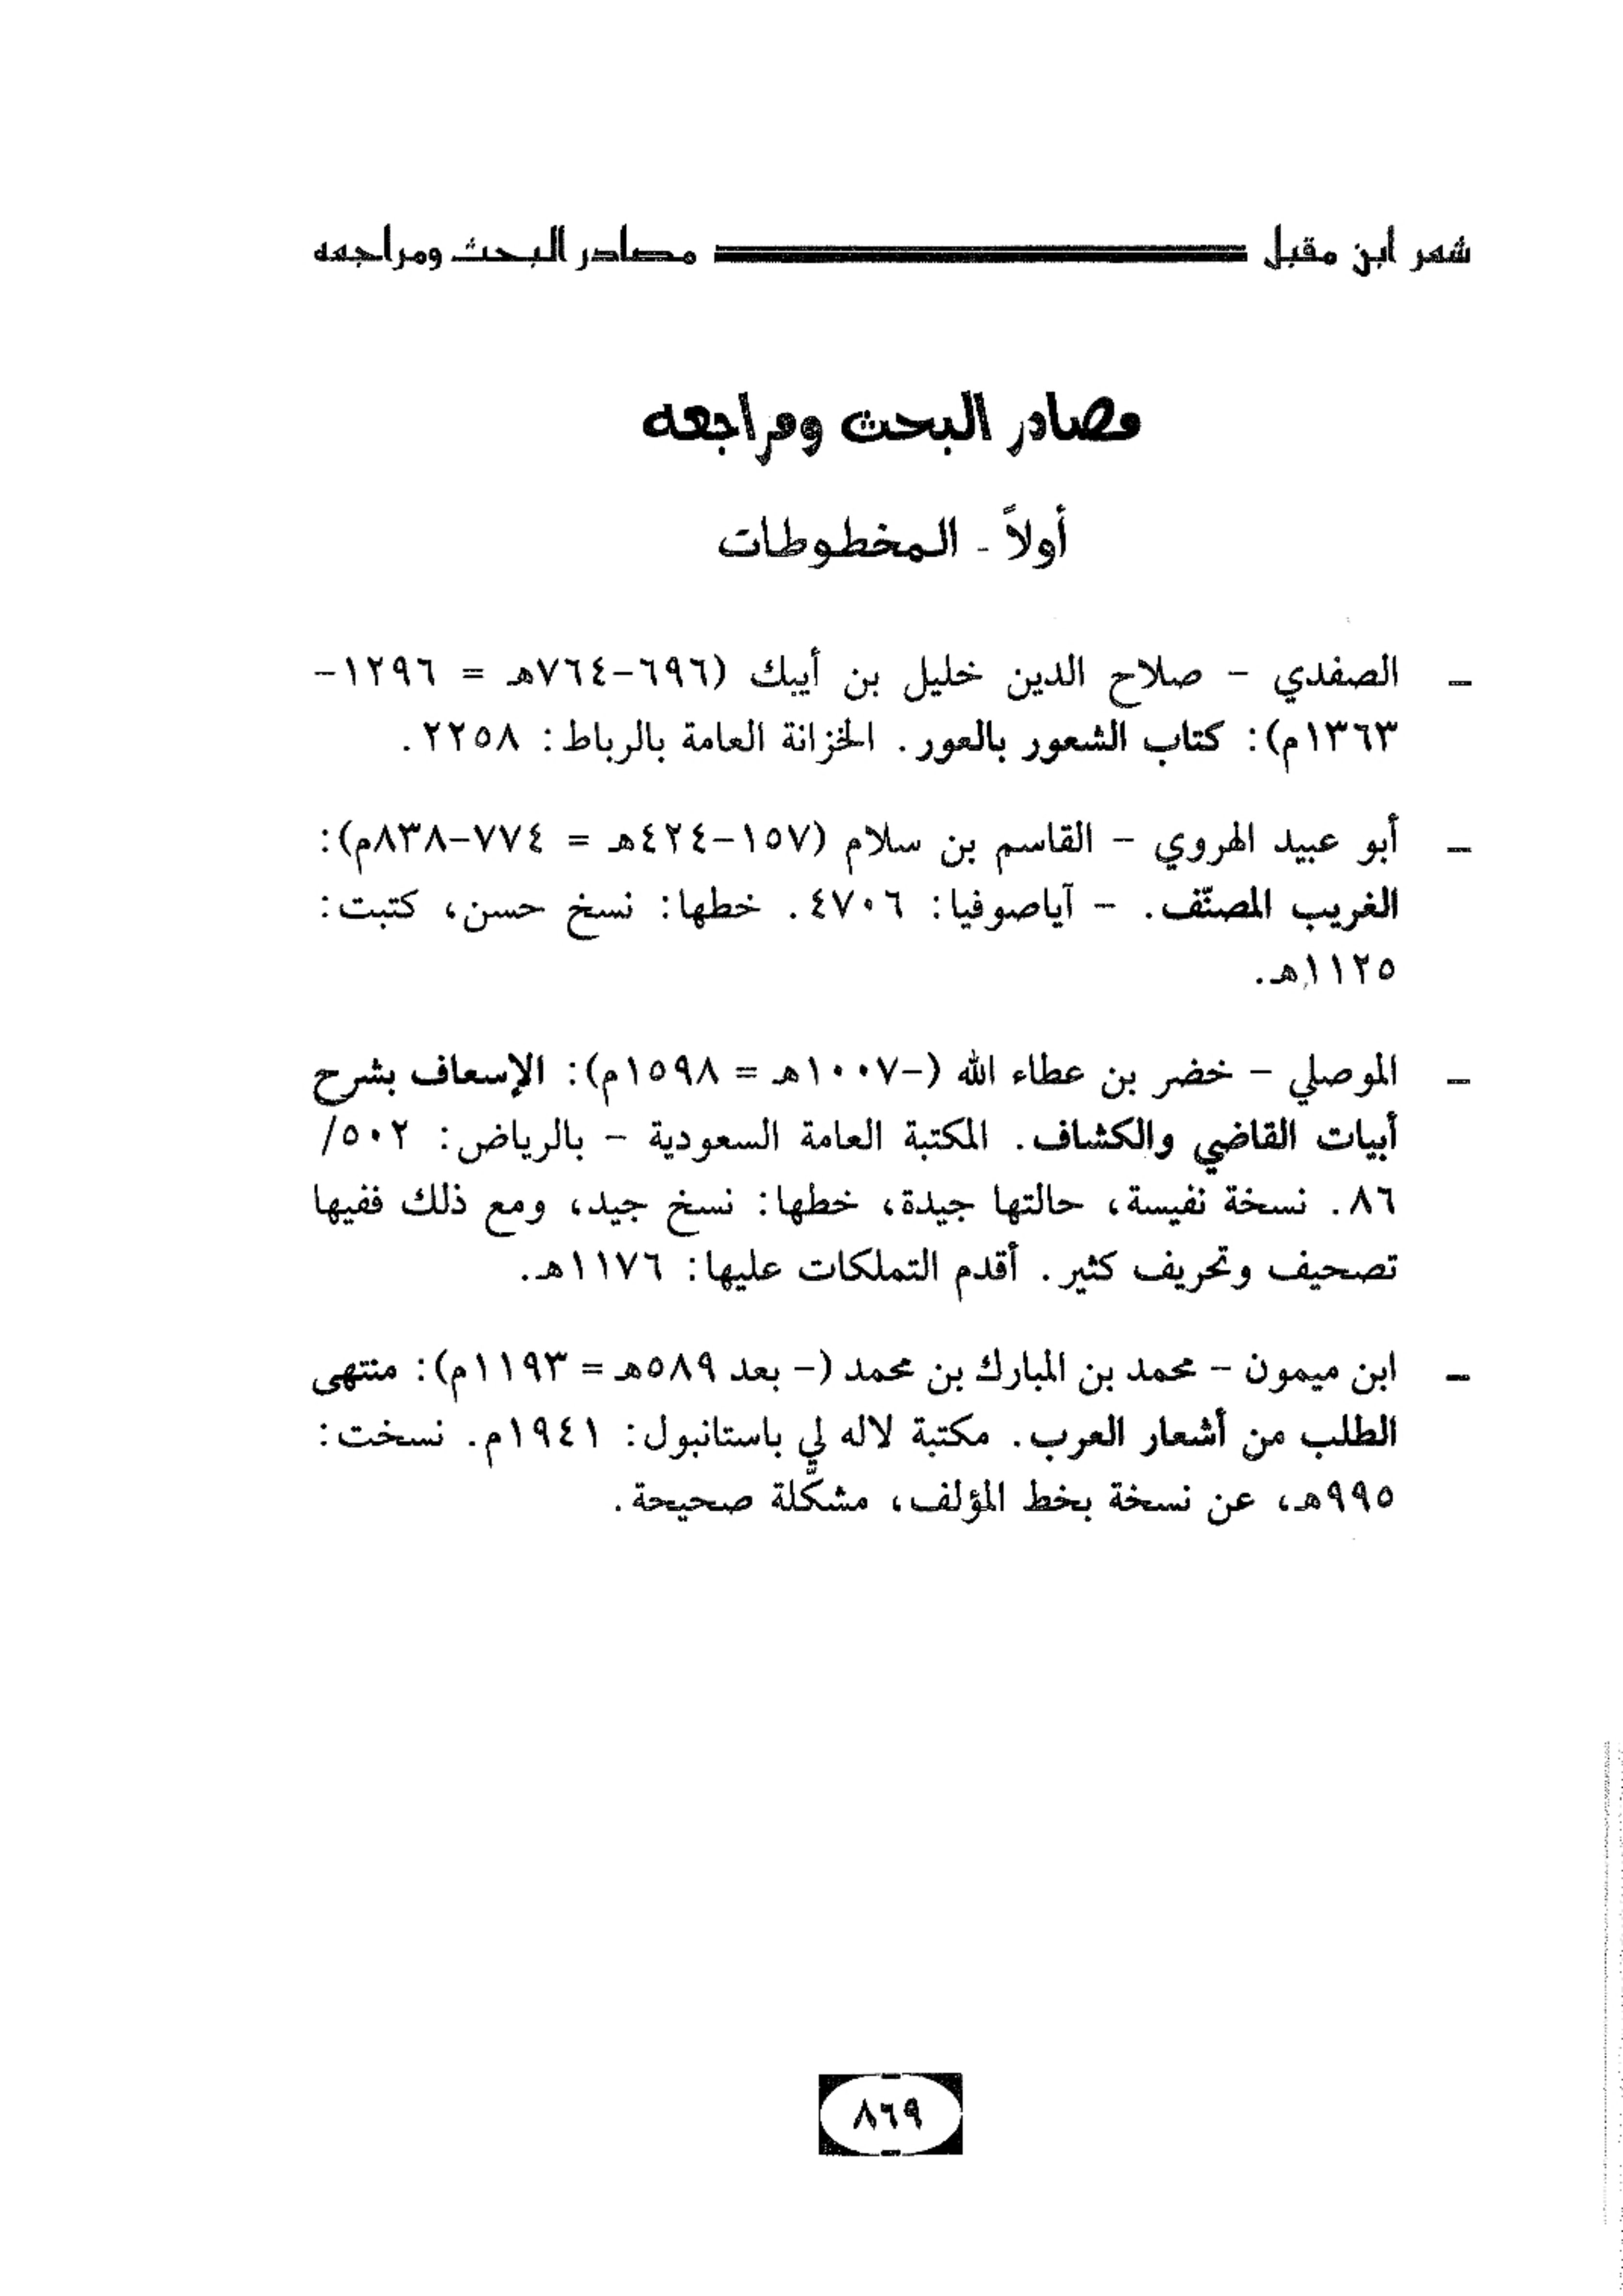 شعر ابن مقبل مصادر البحث ومراجعه
مصادر البحث ومراجعه
أولاً - المخطوطات
– الصفدي – صلاح الدين خليل بن أيبك (٦٩٦–٧٦٤هـ = ١٢٩٦–
١٣٦٣م): كتاب الشعور بالعور. الخزانة العامة بالرباط: ٢٢٥٨.
– أبو عبيد الهروي – القاسم بن سلام (١٥٧–٤٢٤هـ = ٧٧٤–٨٣٨م):
الغريب المصنّف. – آياصوفيا: ٤٧٠٦. خطها: نسخ حسن، كتبت:
١١٢٥هـ.
– الموصلي – خضر بن عطاء الله (–١٠٠٧هـ = ١٥٩٨م): الإسعاف بشرح
أبيات القاضي والكشاف. المكتبة العامة السعودية – بالرياض: ٥٠٢/
٨٦. نسخة نفيسة، حالتها جيدة، خطها: نسخ جيد، ومع ذلك ففيها
تصحيف وتحريف كثير. أقدم التملكات عليها: ١١٧٦هـ.
– ابن ميمون – محمد بن المبارك بن محمد (– بعد ٥٨٩هـ = ١١٩٣م): منتهى
الطلب من أشعار العرب. مكتبة لاله لي باستانبول: ١٩٤١م. نسخت:
٩٩٥هـ، عن نسخة بخط المؤلف، مشكّلة صحيحة.
٨٦٩